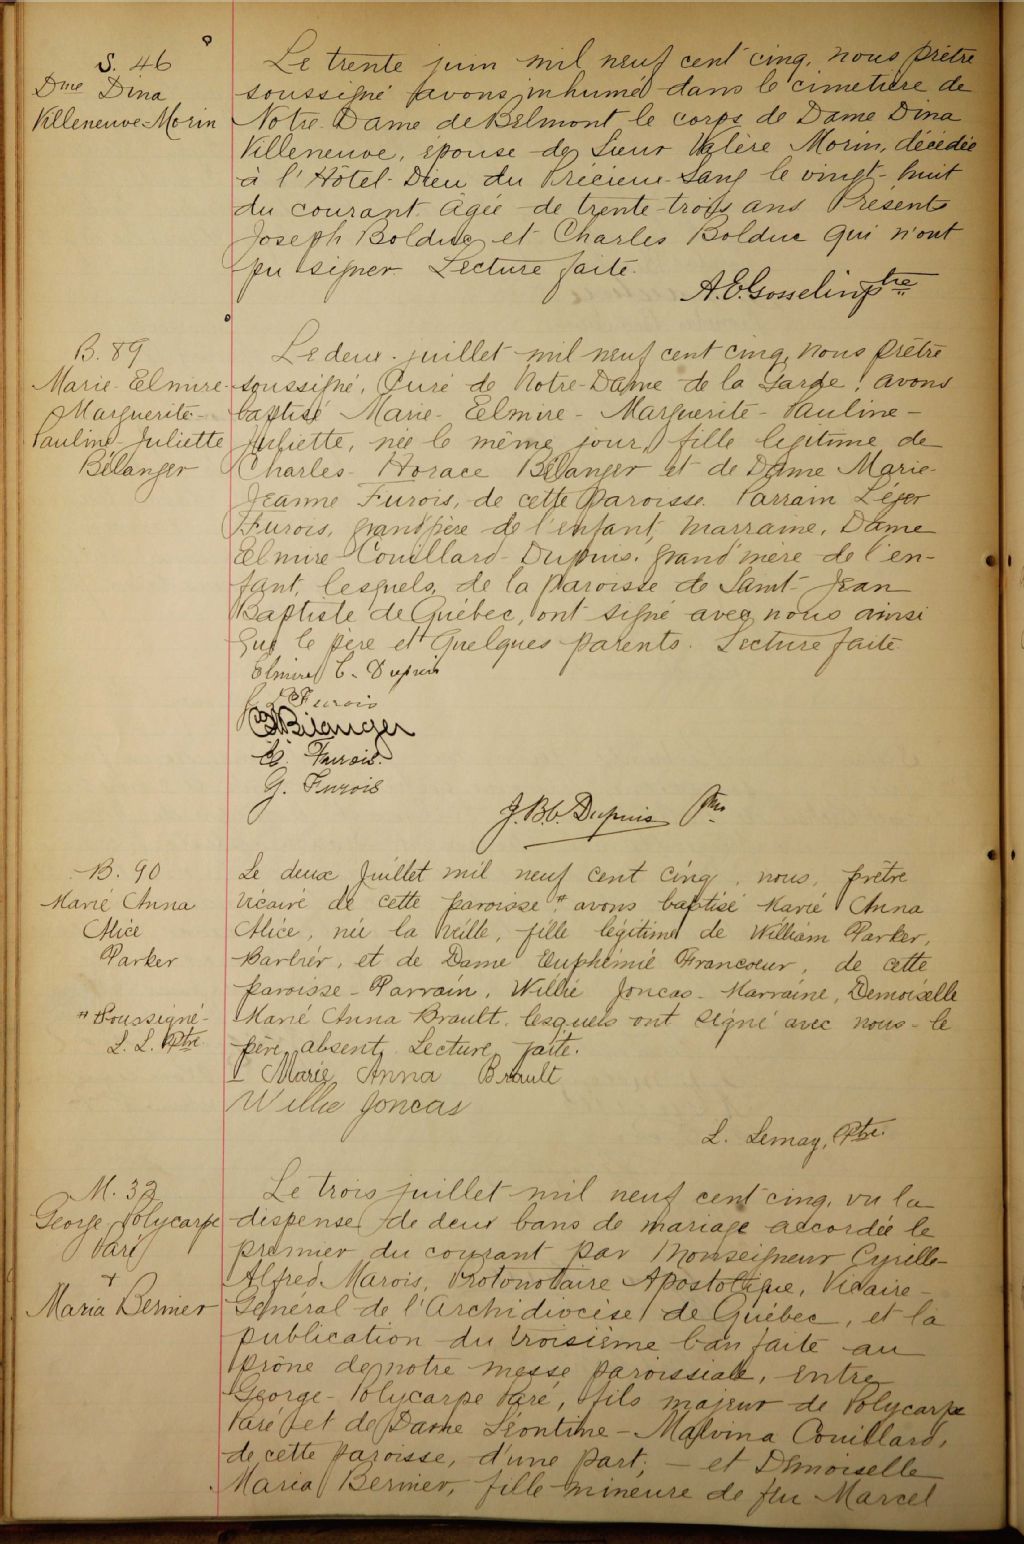 S. 46
Dme Dina
Villeneuve-Morin
Le trente juin mil neuf cent cinq, nous prêtre
soussigné avons inhumé dans le cimetière de
Notre-Dame de Belmont le corps de Dame Dina
Villeneuve, épouse de Sieur Valère Morin, décédée
à l'Hôtel-Dieu du Précieux-Sang le vingt-huit
du courant âgée de trente-trois ans Présents
Joseph Bolduc et Charles Bolduc qui n'ont
pu signer. Lecture faite.
A.E. Gosselin ptre
B. 89
Marie-Elmire-
Marguerite-
Pauline-Juliette
Bélanger
Le deux juillet mil neuf cent cinq, nous prêtre
soussigné, Curé de Notre-Dame de la Garde, avons
baptisé Marie-Eelmire-Marguerite-Pauline-
Juliette, née le même jour, fille légitime de
Charles-Horace Bélanger et de Dame Marie-
Jeanne Furois, de cette paroisse. Parrain Léger
Furois, grand'père de l'enfant, marraine, Dame
Elmire Couillard-Dupuis, grand'mère de l'en-
fant, lesquels, de la paroisse de Saint-Jean
Baptiste de Québec, ont signé avec nous ainsi
que le père et quelques parents. Lecture faite
Elmire C. Dupuis
Furois
Bélanger
Furois.
G. Furois
J.B.C. Dupuis Ptre
B. 90
Marie Anna
Alice
Parker
# Soussigné-
L. L. Ptre
Le deux Juillet mil neuf cent cinq, nous, prêtre
vicaire de cette paroisse # avons baptisé Marie Anna
Alice, née la veille, fille légitime de William Parker,
Barbier, et de Dame Euphemie Francoeur, de cette
paroisse - Parrain, Willie Joncas - Marraine, Demoiselle
Marie Anna Brault, lesquels ont signé avec nous - le
père absent. Lecture faite.
Marie Anna Brault
Willie Joncas
L. Lemay, Ptre.
M. 32
George-Polycarpe
Paré
+
Maria Bernier
Le trois juillet mil neuf cent cinq, vu la
dispense de deux bans de mariage accordée le
premier du courant par Monseigneur Cyrille-
Alfred Marois, Protonotaire Apostolique, Vicaire-
Général de l'Archidiocèse de Québec, et la
publication du troisième ban faite au
prône de notre messe paroissiale, entre
George-Polycarpe Paré, fils majeur de Polycarpe
Paré et de Dame Léontine-Malvina Couillard,
de cette paroisse, d'une part; - et Demoiselle
Maria Bernier, fille mineure de feu Marcel